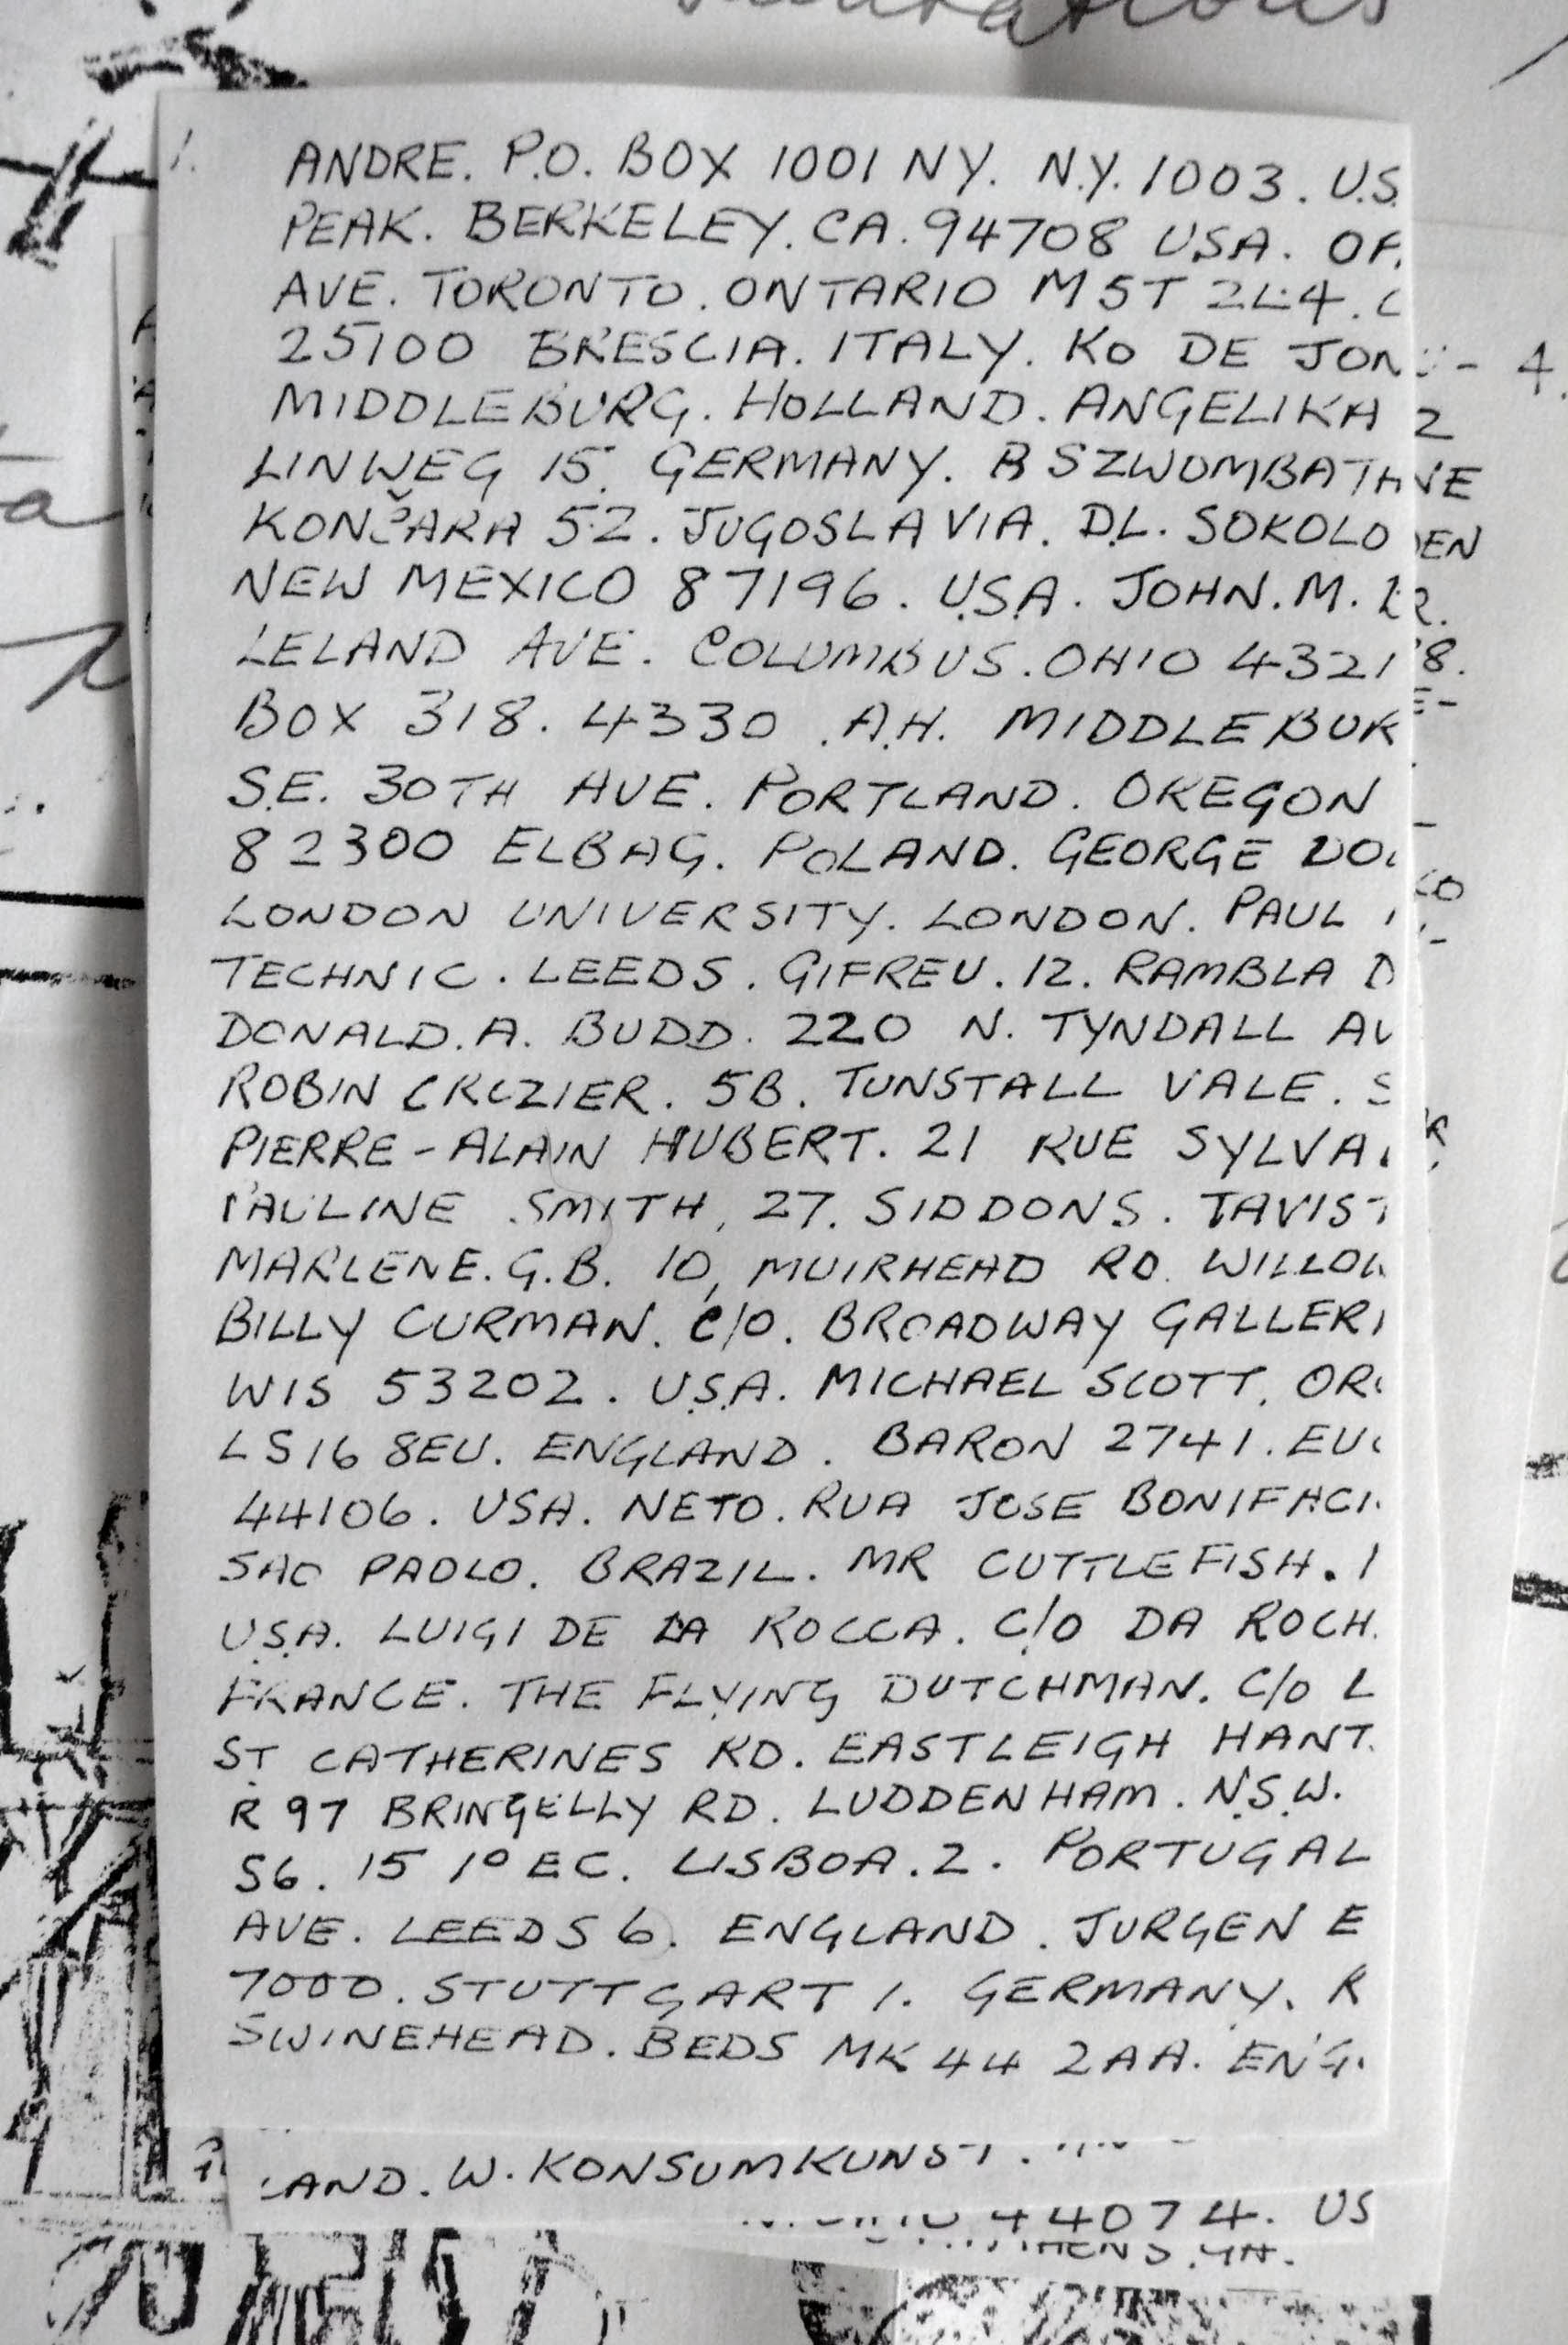 1.
ANDRE. P.O. BOX 1001 NY. N.Y. 1003. U.S.
PEAK. BERKELEY. CA. 94708 USA.
AVE. TORONTO. ONTARIO M5T 2L4.
25100 BRESCIA. ITALY. KO DE JON
MIDDLEBURG. HOLLAND. ANGELIKA
LINWEG 15. GERMANY. B SZWOMBATH
KONČARA 52. JUGOSLAVIA. D.L. SOKOLO
NEW MEXICO 87196. U.S.A. JOHN. M.
LELAND AVE. COLUMBUS. OHIO 4321
BOX 318. 4330 .A.H. MIDDLEBUR
S.E. 30TH AVE. PORTLAND. OREGON
82300 ELBAG. POLAND. GEORGE
LONDON UNIVERSITY. LONDON. PAUL
TECHNIC. LEEDS. GIFREU. 12. RAMBLA D
DONALD. A. BUDD. 220 N. TYNDALL AV
ROBIN CROZIER. 5B. TUNSTALL VALE. S
PIERRE-ALAIN HUBERT. 21 RUE SYLVA
PAULINE SMITH, 27. SIDDONS. TAVIST
MARLENE. G.B. 10, MUIRHEAD RD. WILLOW
BILLY CURMAN. C/O. BROADWAY GALLERI
WIS 53202. U.S.A. MICHAEL SCOTT.
LS16 8EU. ENGLAND. BARON 2741.
44106. USA. NETO. RUA JOSE BONIFACI
SAO PAOLO. BRAZIL. MR CUTTLEFISH.
U.S.A. LUIGI DE LA ROCCA. C/O DA ROCH
FRANCE. THE FLYING DUTCHMAN. C/O L
ST CATHERINES RD. EASTLEIGH HANT
R 97 BRINGELLY RD. LUDDENHAM. N.S.W.
S6. 15 1º EC. LISBOA. 2. PORTUGAL
AVE. LEEDS 6. ENGLAND. JURGEN E
7000. STUTTGART 1. GERMANY. R
SWINEHEAD. BEDS MK44 2AA. ENG.
LAND. W. KONSUMKUNST.
44074. US